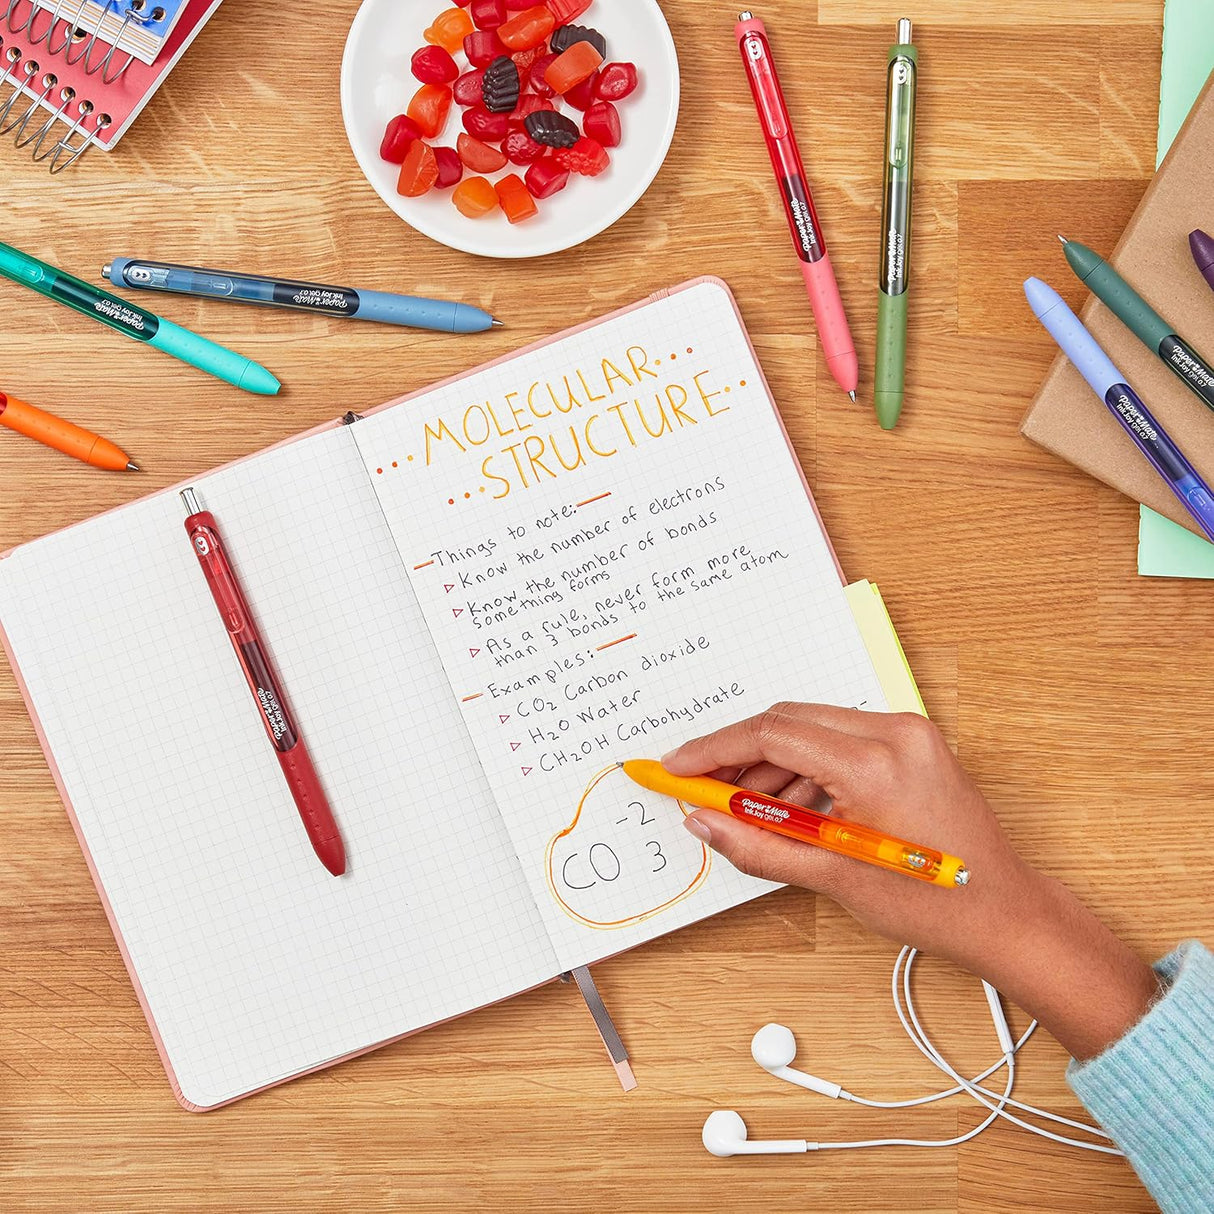 MOLECULAR
STRUCTURE
Things to note:
Know the number of electrons
Know the number of bonds
something forms
As a rule, never form more
than 3 bonds to the same atom
Examples:
CO2 Carbon dioxide
H2O Water
CH2OH Carbohydrate
CO3-2
Paper Mate
InkJoy gel 0.7
Paper Mate
InkJoy gel 0.7
Paper Mate
InkJoy gel 0.7
Paper Mate
InkJoy gel 0.7
Paper Mate
InkJoy gel 0.7
Paper Mate
InkJoy gel 0.7
Paper Mate
InkJoy gel 0.7
Paper Mate
InkJoy gel 0.7